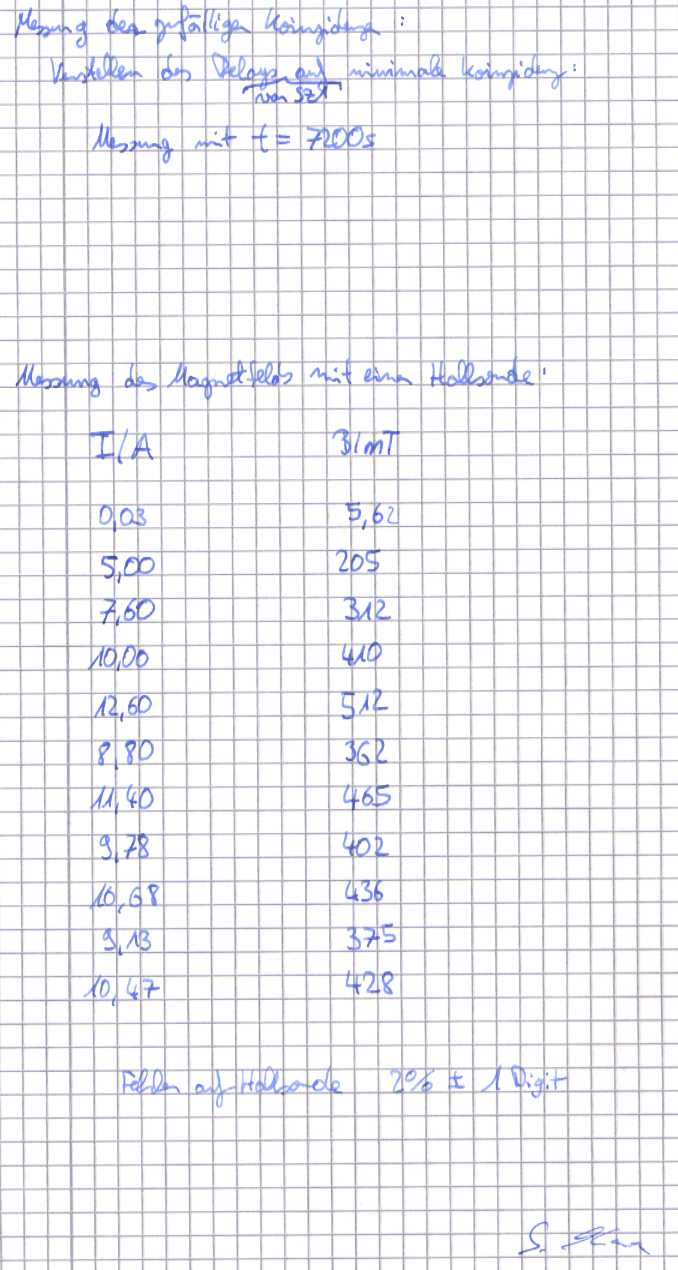 Messung der zufälligen Koinzidenz :
Verstellen des Delays auf minimale Koinzidenz:
von SZ1
Messung mit t = 7200s
Messung des Magnetfelds mit einer Hallsonde:
I/A B/mT
0,03 5,62
5,00 205
7,60 312
10,00 410
12,60 512
8,80 362
11,40 465
9,78 402
10,68 436
9,13 375
10,47 428
Fehler auf Hallsonde 2% ± 1 Digit
S.